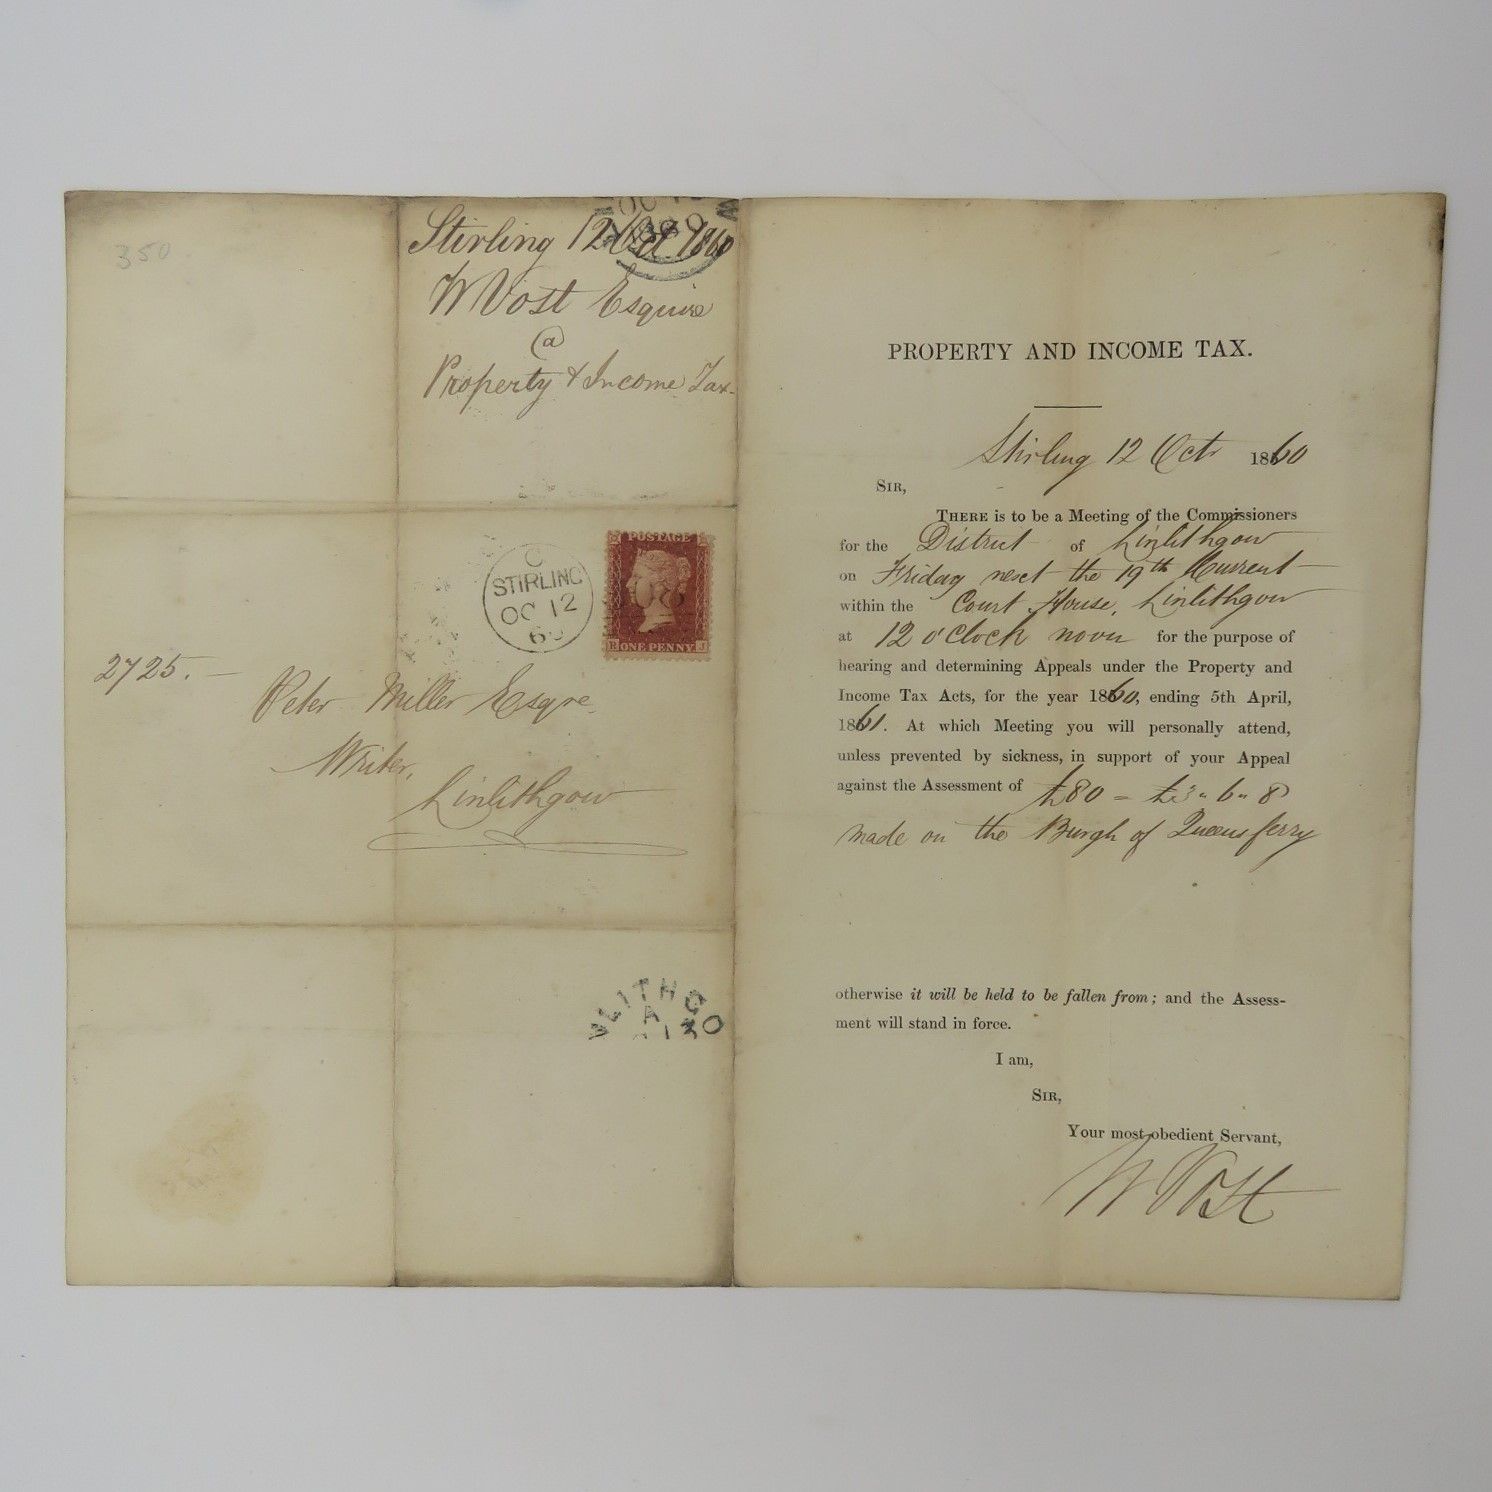 350
Stirling 12 Oct 1860
W Vost Esquire
@
Property & Income Tax
C
STIRLING
OC 12
POSTAGE
ONE PENNY J
2725.
Peter Miller Esqre
Writer,
Linlithgow
NLITHGO
A
PROPERTY AND INCOME TAX.
Stirling 12 Octr 1860
SIR,
THERE is to be a Meeting of the Commissioners
for the District of Linlithgow
on Friday next the 19th Current
within the Court House, Linlithgow
at 12 o'Clock noon for the purpose of
hearing and determining Appeals under the Property and
Income Tax Acts, for the year 1860, ending 5th April,
1861. At which Meeting you will personally attend,
unless prevented by sickness, in support of your Appeal
against the Assessment of £80 = £3 " 6 " 8
made on the Burgh of Queensferry
otherwise it will be held to be fallen from; and the Assess-
ment will stand in force.
I am,
SIR,
Your most obedient Servant,
W Vost